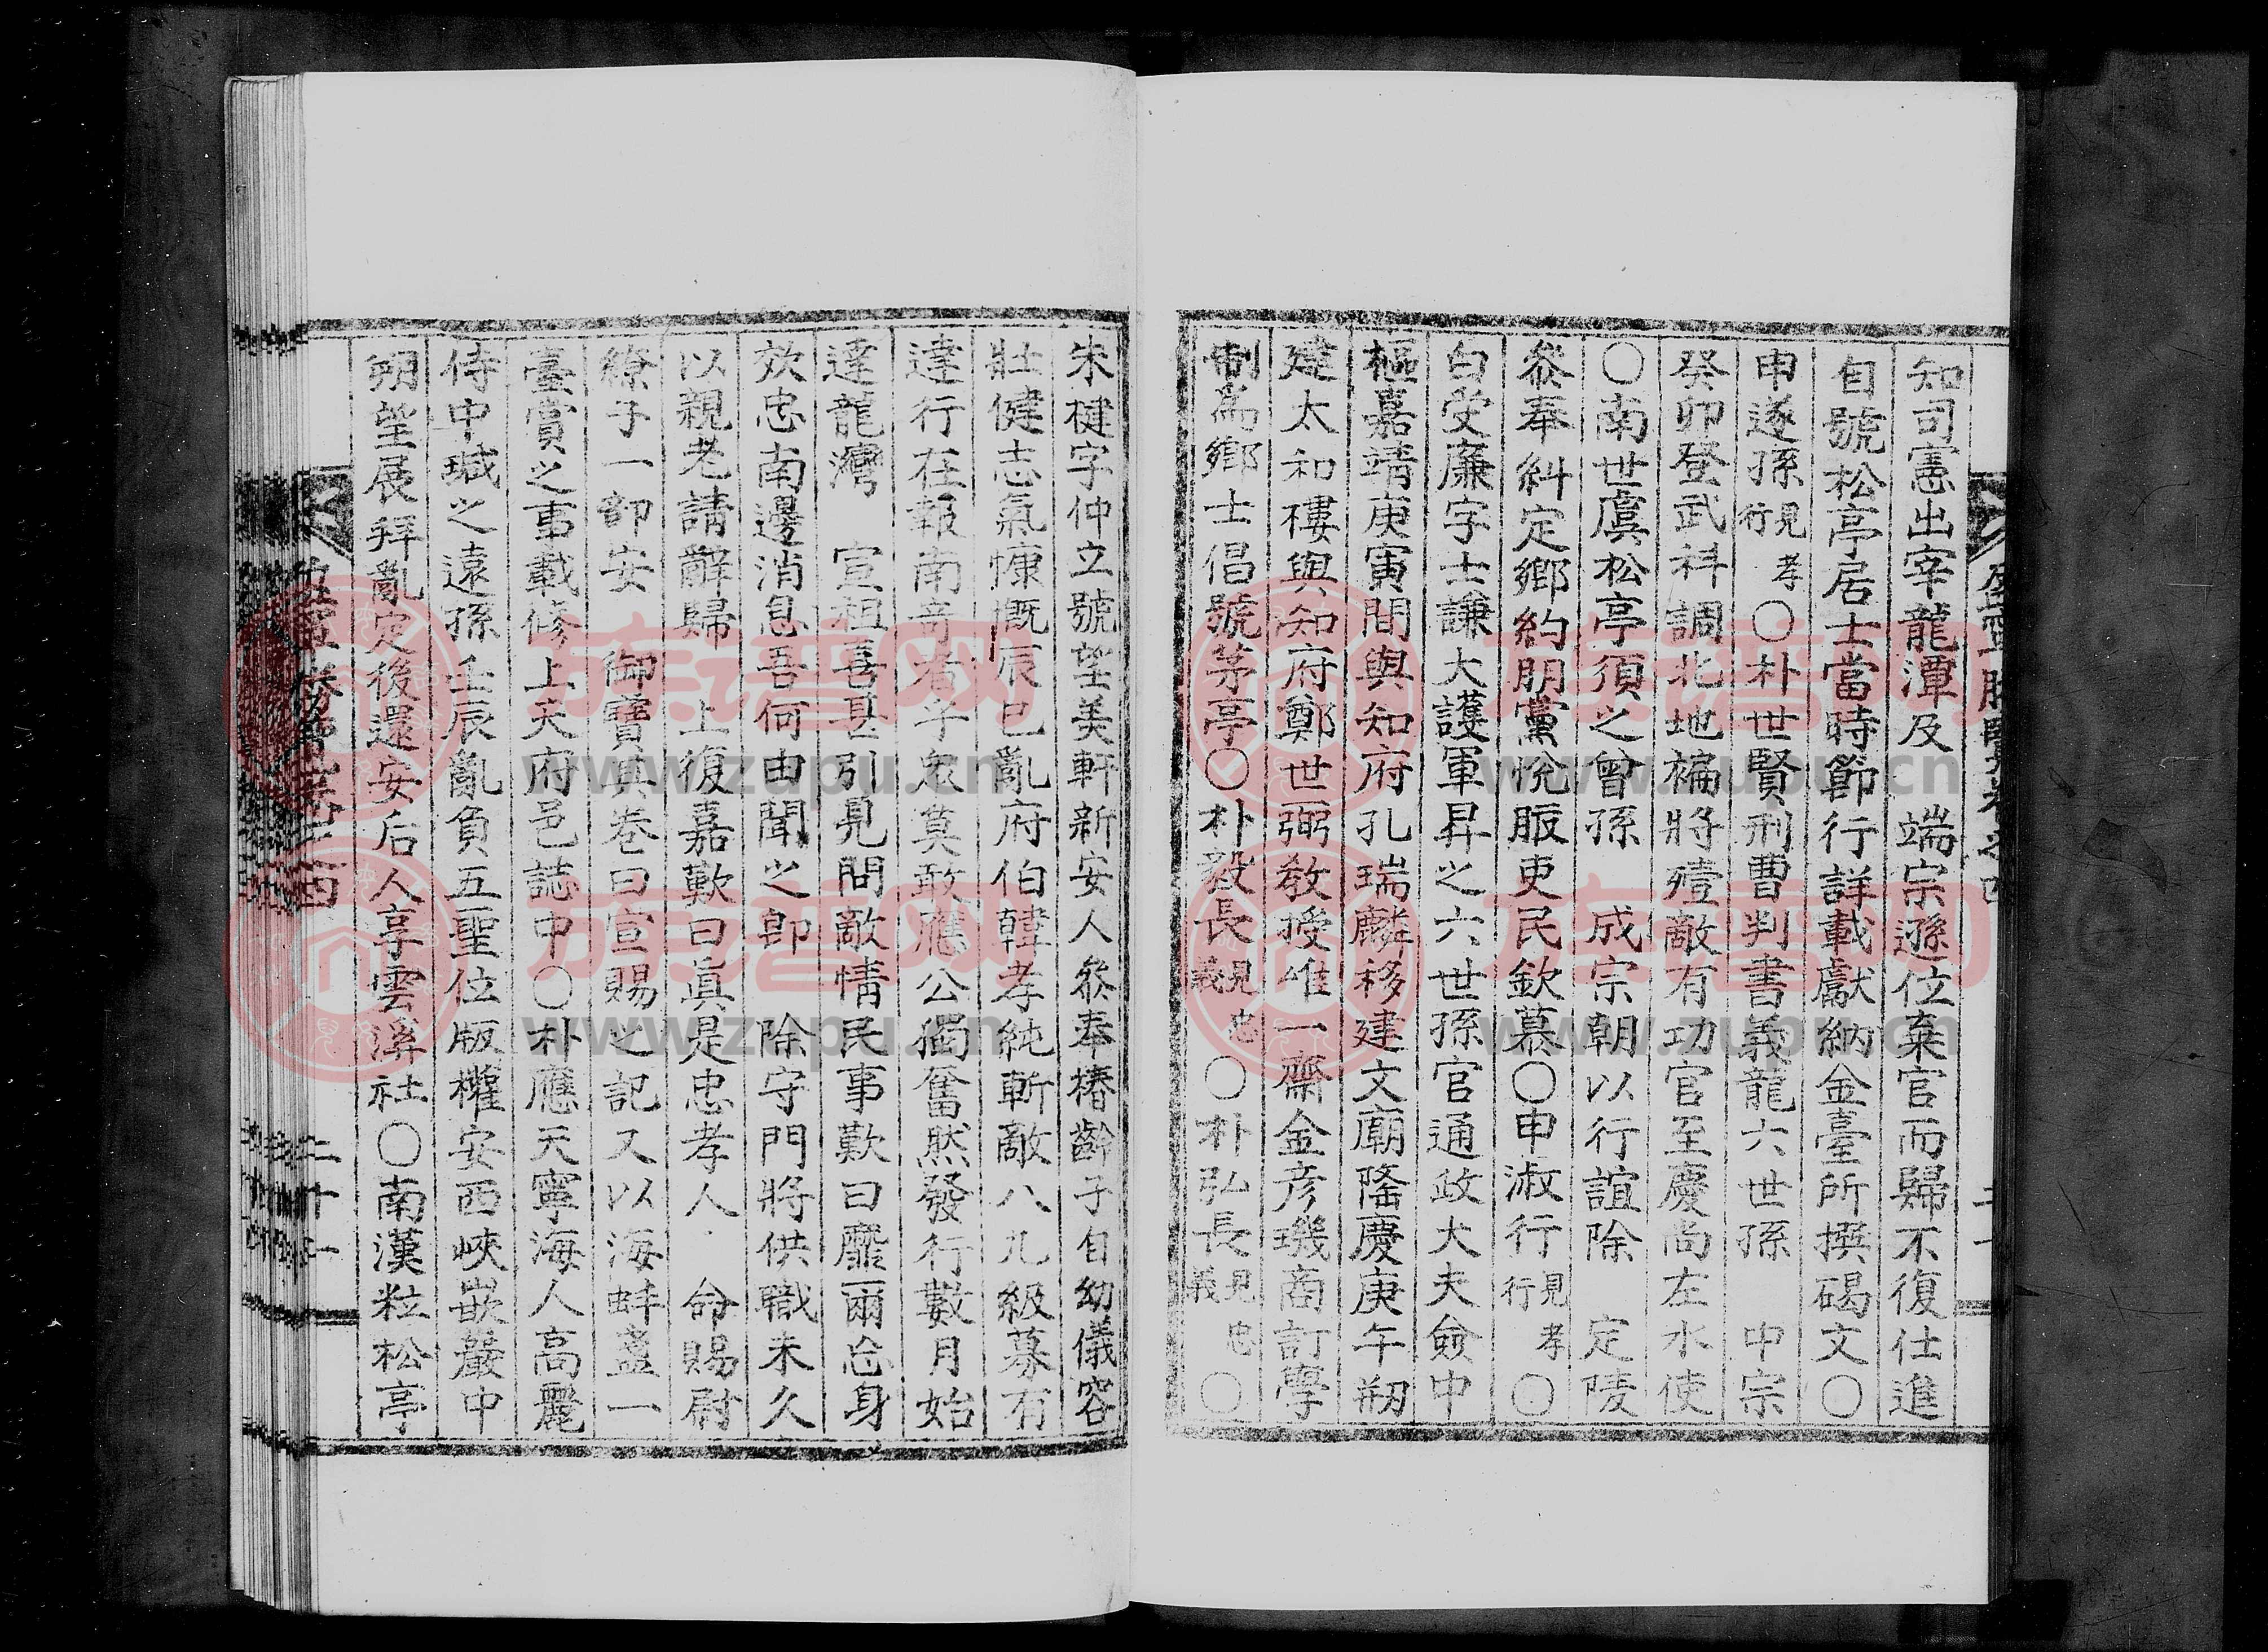 知司憲出宰龍潭及　端宗遜位棄官而歸不復仕進
自號松亭居士當時節行詳載獻納金臺所撰碣文〇
申遂孫見孝行〇朴世賢刑曹判書義龍六世孫　中宗
癸卯登武科調北地褊將殪敵有功官至慶尙左水使
〇南世虞松亭須之曾孫　成宗朝以行誼除　定陵
叅奉糾定鄕約朋黨悅服吏民欽慕〇申淑行見孝行〇
白受廉字士謙大護軍昇之六世孫官通政大夫僉中
樞嘉靖庚寅間與知府孔瑞麟移建文廟隆慶庚午刱
建太和樓與知府鄭世弼敎授崔一齋金彦璣商訂學
制爲鄕士倡號茅亭〇朴毅長見忠義〇朴弘長見忠義〇
朱楗字仲立號望美軒新安人叅奉椿齡子自幼儀容
壯健志氣慷慨辰巳亂府伯韓孝純斬敵八九級募有
達行在報南奇者子衆莫敢應公獨奮然發行數月始
達龍灣　宣祖喜甚引見問敵情民事歎曰靡爾忘身
效忠南邊消息吾何由聞之卽　除守門將供職未久
以親老請辭歸　上復嘉歎曰眞是忠孝人　命賜尉
繚子一部安　御寶其卷曰宣賜之記又以海蚌盞一
臺賞之事載修上天府邑誌中〇朴應天寧海人高麗
侍中瑊之遠孫壬辰亂負五聖位版權安西峽嵌巖中
朔望展拜亂定後還安后人享雲溪社〇南漢粒松亭
二十一
www.zupu.cn
族譜网